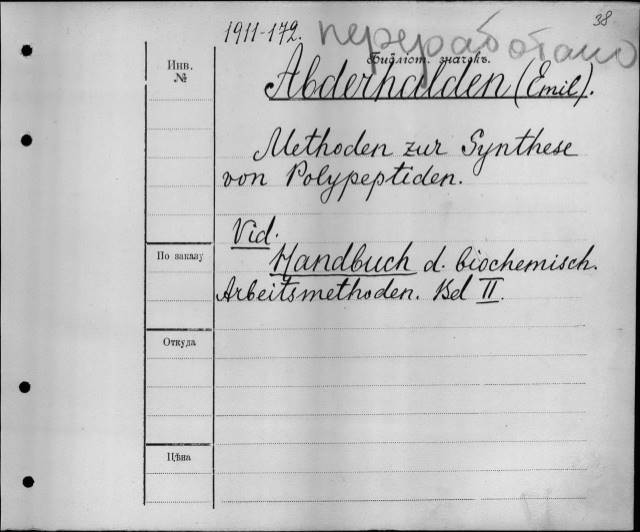 38
1911-172. переработано
Библіот. значокъ.
Инв.
№
Abderhalden (Emil).
Methoden zur Synthese
von Polypeptiden.
Vid.
По заказу
Handbuch d. biochemisch.
Arbeitsmethoden. Bd II.
Откуда
Цѣна